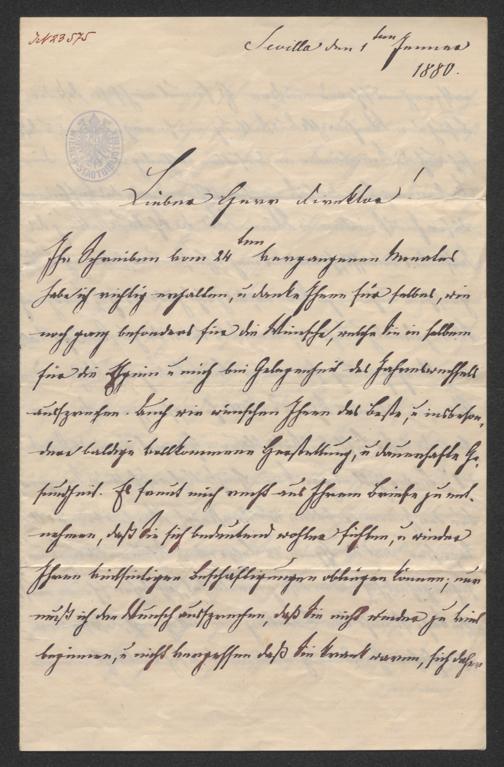 JN 23575
Sevilla den 1ten Jenner
1880.
WIENER STADTBIBLIOTHEK
Lieber Herr Direktor!
Ihr Schreiben vom 24ten vergangenen Monates
habe ich richtig erhalten, u danke Ihnen für selbes, wie
noch ganz besonders für die Wünsche, welche Sie in selbem
für die u mich bei Gelegenheit des Jahreswechsels
aussprechen. Auch wir wünschen Ihnen das Beste, u insbeson-
dere baldige vollkommene Herstellung, u dauerhafte Ge-
sundheit. Es freut mich recht aus Ihrem Briefe zu ent-
nehmen, daß Sie sich bedeutend wohler fühlen, u wieder
Ihren vielseitigen Beschäftigungen obliegen können; nur
muß ich den Wunsch aussprechen, daß Sie nicht wieder zu viel
beginnen, u nicht vergessen daß Sie krank waren, sich daher